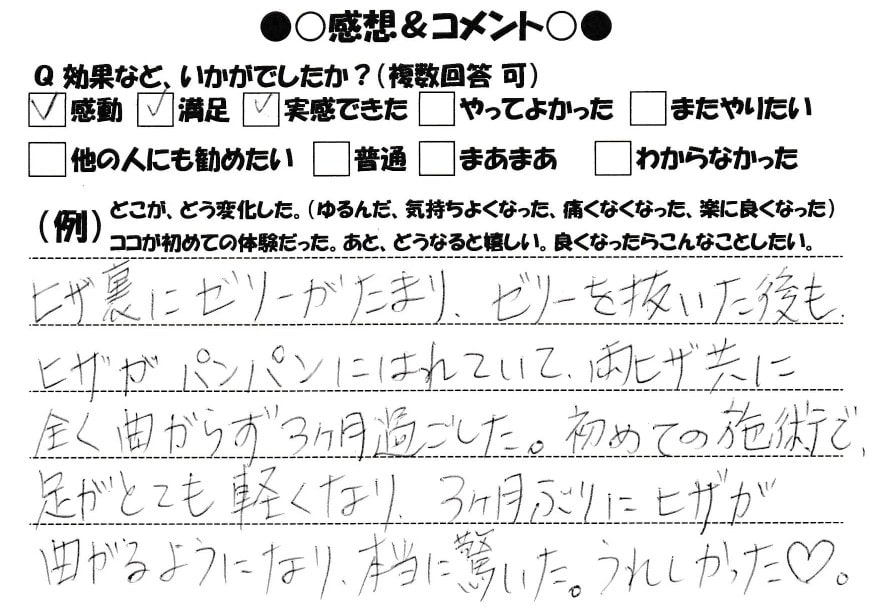 ●○感想&コメント○●
Q 効果など、いかがでしたか？（複数回答 可）
☑感動 ☑満足 ☑実感できた □やってよかった □またやりたい
□他の人にも勧めたい □普通 □まあまあ □わからなかった
（例）どこが、どう変化した。（ゆるんだ、気持ちよくなった、痛くなくなった、楽に良くなった）
ココが初めての体験だった。あと、どうなると嬉しい。良くなったらこんなことしたい。
ヒザ裏にゼリーがたまり、ゼリーを抜いた後も、
ヒザがパンパンにはれていて、両ヒザ共に
全く曲がらず3ヶ月過ごした。初めての施術で、
足がとても軽くなり、3ヶ月ぶりにヒザが
曲がるようになり、本当に驚いた。うれしかった♡。